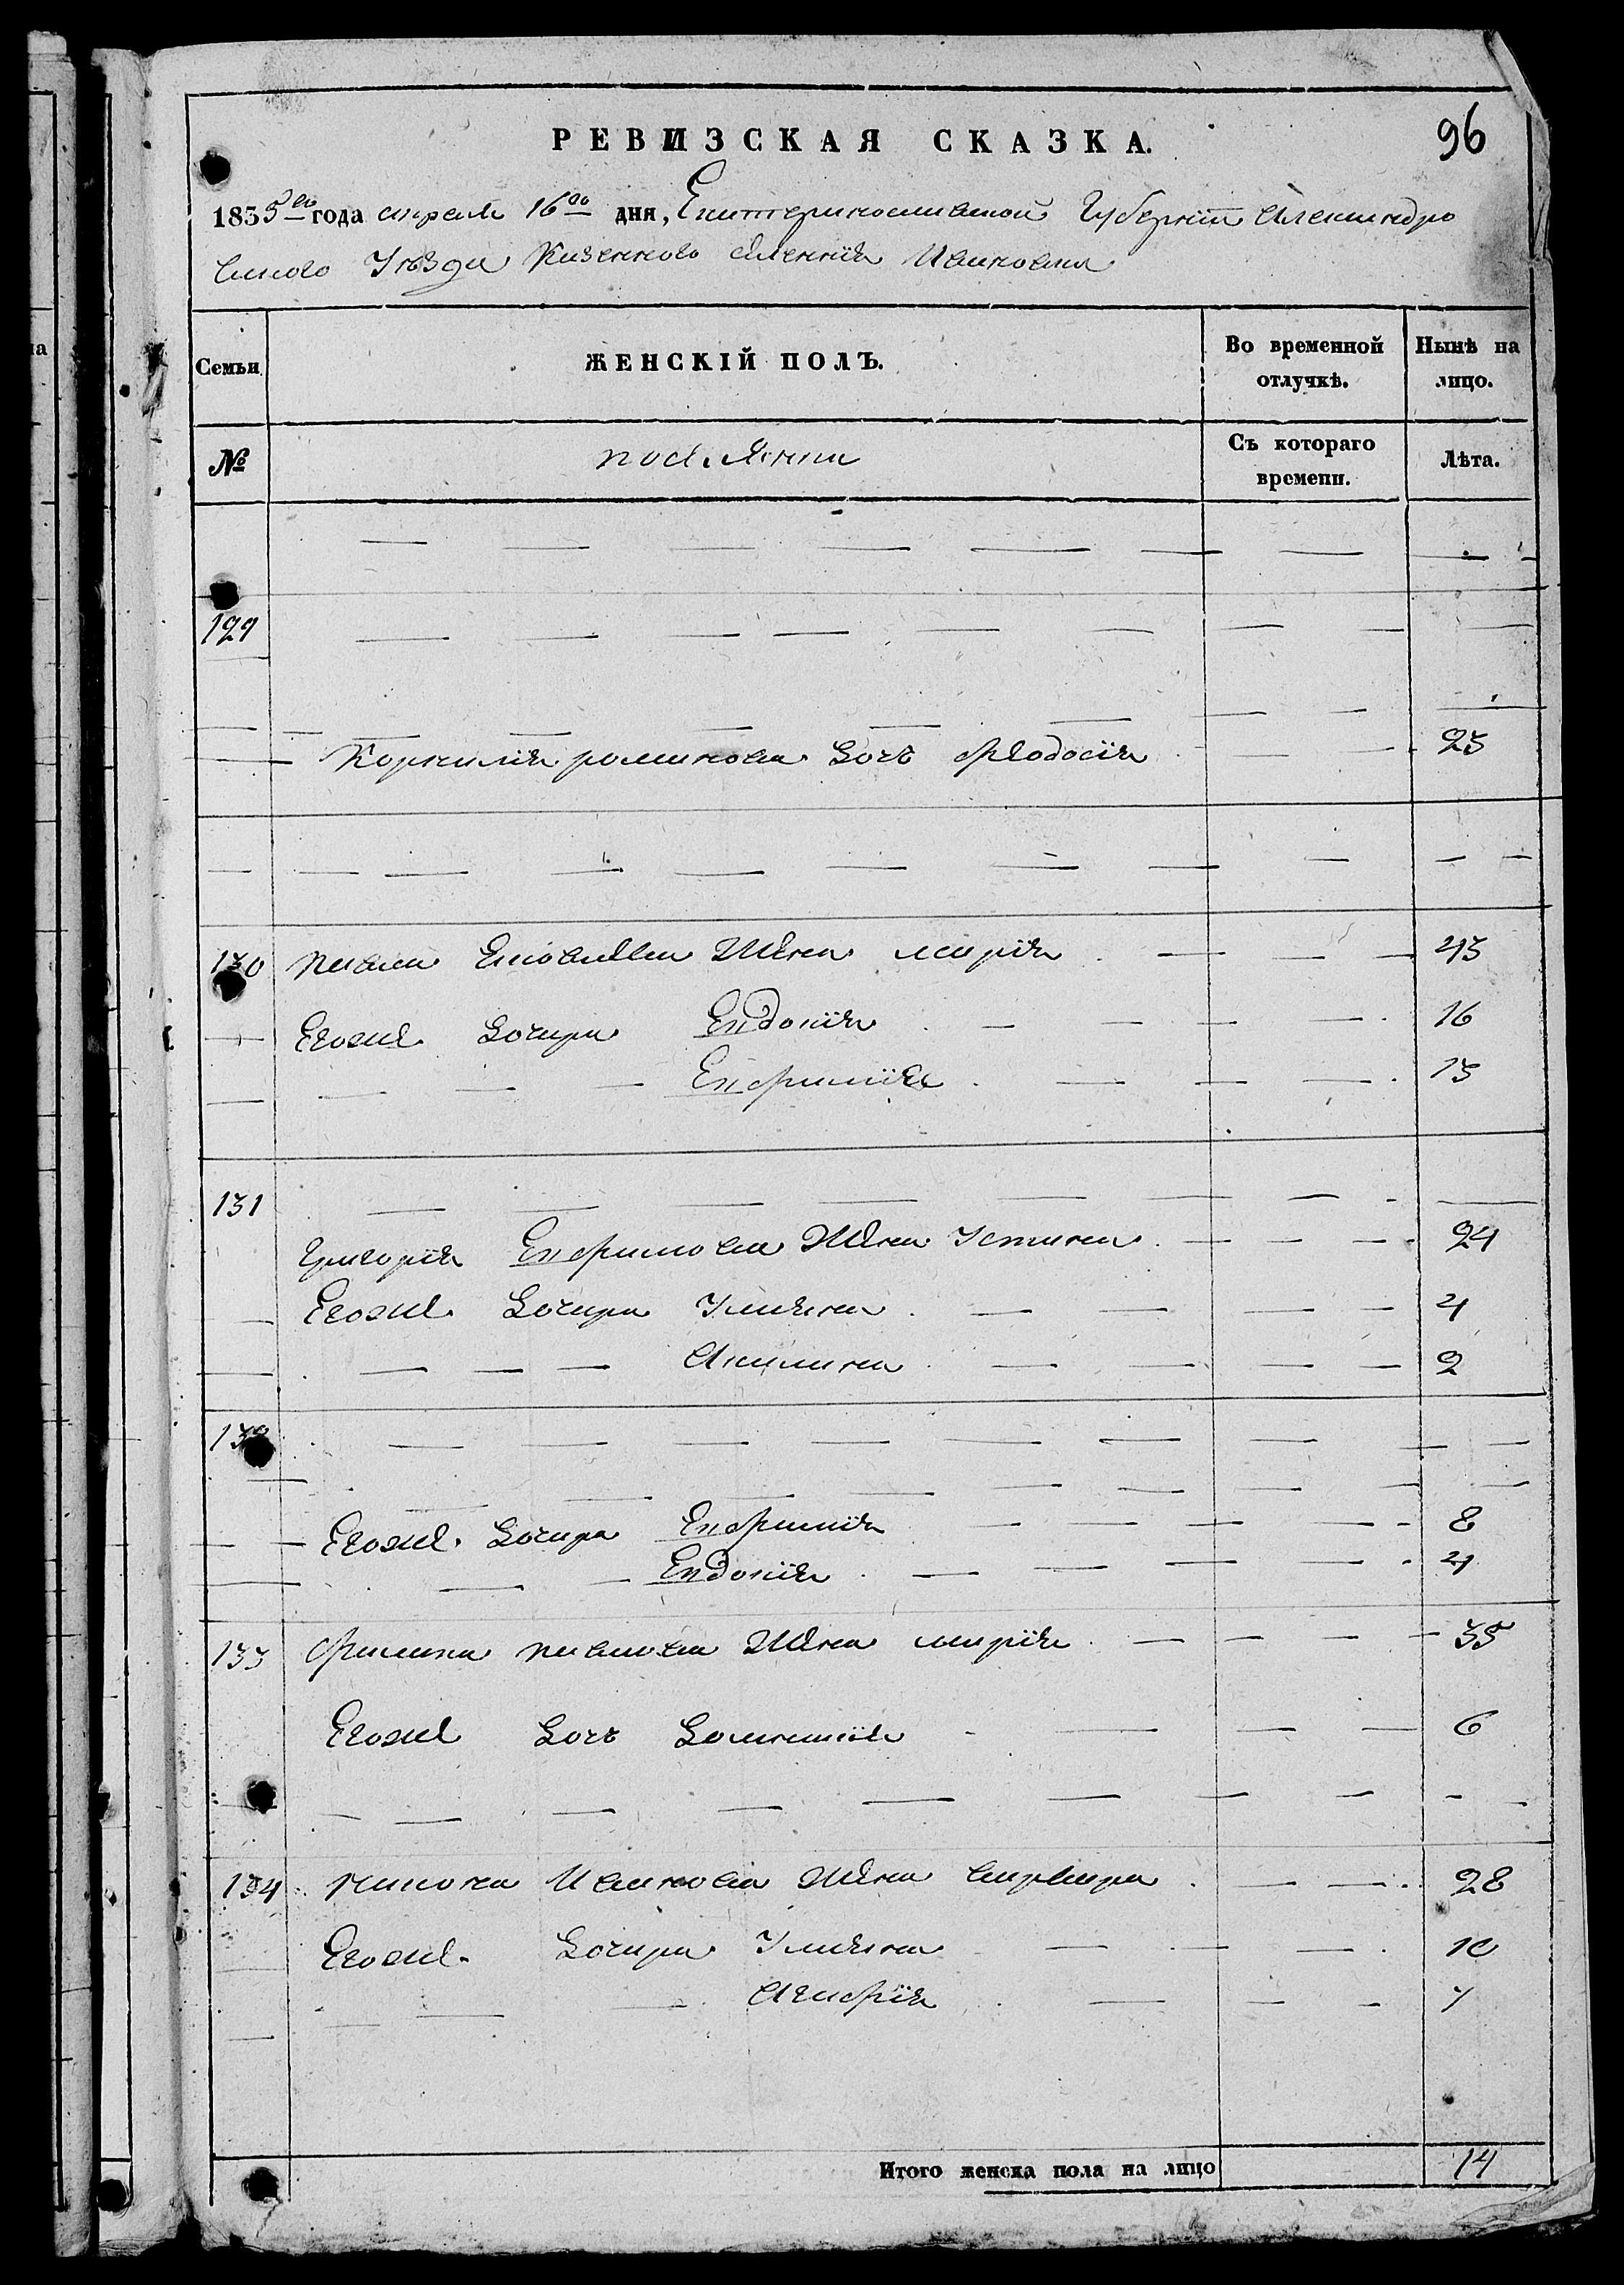 РЕВИЗСКАЯ СКАЗКА.
96
1835го года апреля 16го дня, Екатеринославской Губернии Александро
вского Уезда Казенного селения Ивановка
Семьи
ЖЕНСКІЙ ПОЛЪ.
Во временной отлучкѣ.
Нынѣ на лицо.
№
Съ котораго времени.
Лѣта.
129
Корнилія романова дочь Феодосія 23
130 павла жена марія 43
Егоже дочери Евдокія 16
Ефимія 13
131
Григорія Ефимова жена Устина 24
Егоже дочери Улияна 4
Акилина 2
132
Егоже дочери Ефимия 8
Евдокия 4
133 Филипа павлова жена марія 35
Егоже дочь Домникія 6
134 Иванова жена варвара 28
Егоже дочери Улияна 10
Агафія 7
Итого женска пола на лицо 14